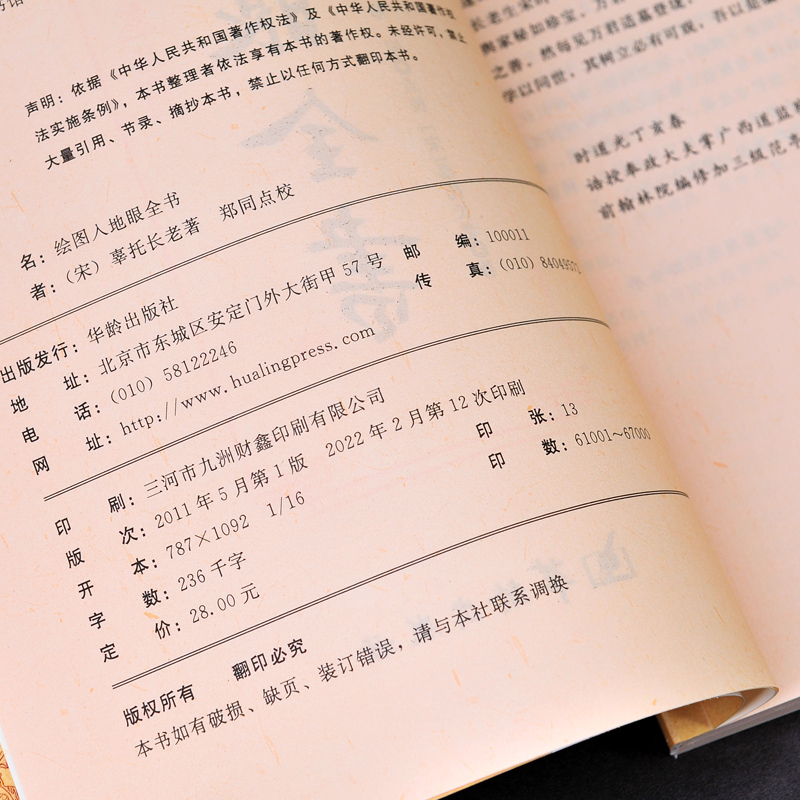 声明：依据《中华人民共和国著作权法》及《中华人民共和国著作权
法实施条例》，本书整理者依法享有本书的著作权。未经许可，禁止
大量引用、节录、摘抄本书，禁止以任何方式翻印本书。
名：绘图人地眼全书
者：（宋）辜托长老著 郑同点校
出版发行：华龄出版社
地 址：北京市东城区安定门外大街甲 57 号 邮 编：100011
电 话：（010）58122246 传 真：（010）84049572
网 址：http://www.hualingpress.com
印 刷：三河市九洲财鑫印刷有限公司
版 次：2011 年 5 月第 1 版 2022 年 2 月第 12 次印刷
开 本：787×1092 1/16 印 张：13
字 数：236 千字 印 数：61001～67000
定 价：28.00 元
版权所有 翻印必究
本书如有破损、缺页、装订错误，请与本社联系调换
之善，然每见万君适墓登垅，
学以问世，其树立必有可观，吾以是
时道光丁亥春
诰授奉政大夫掌广西道监察
前翰林院编修加三级范